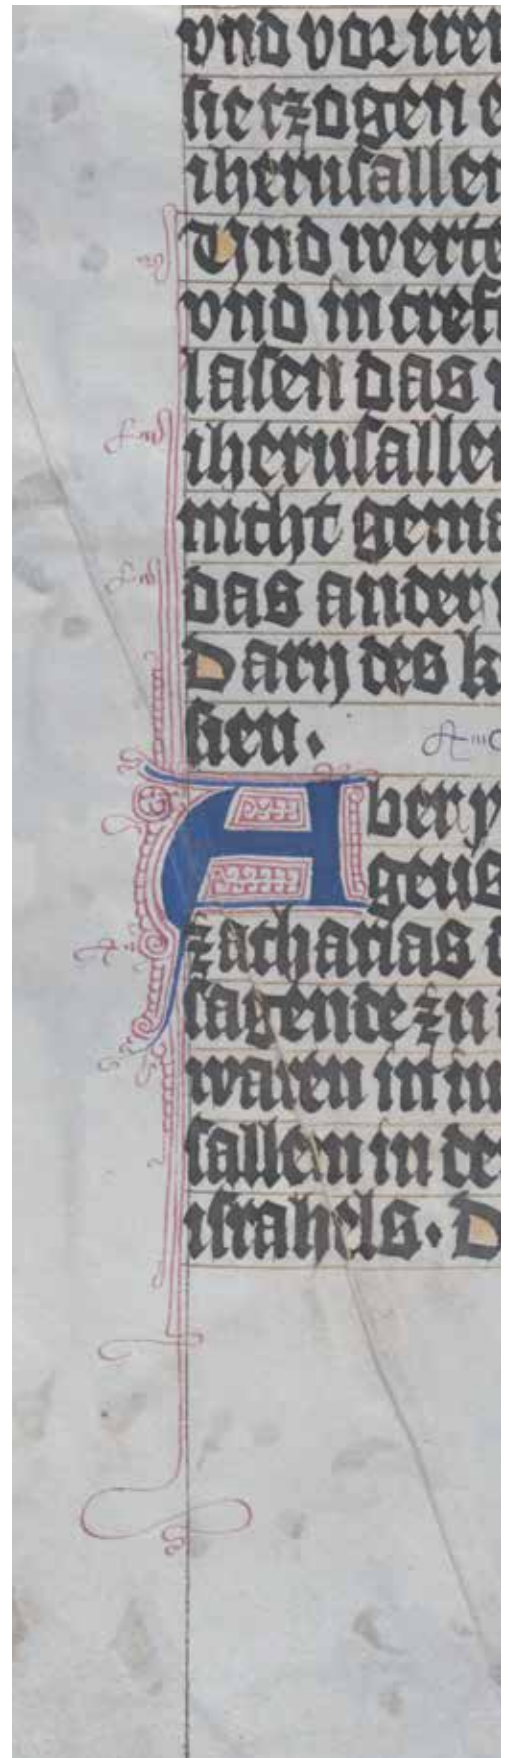 vnd vor iren
sie tzogen e
iherusallem
Vnd werte
vnd in tref
lasen das
iherusallem
nicht gema
das ander
Darij des k
sien.
Aber y
geus
zacharias d
sagende zu i
waren in iu
sallem in de
israhels. D